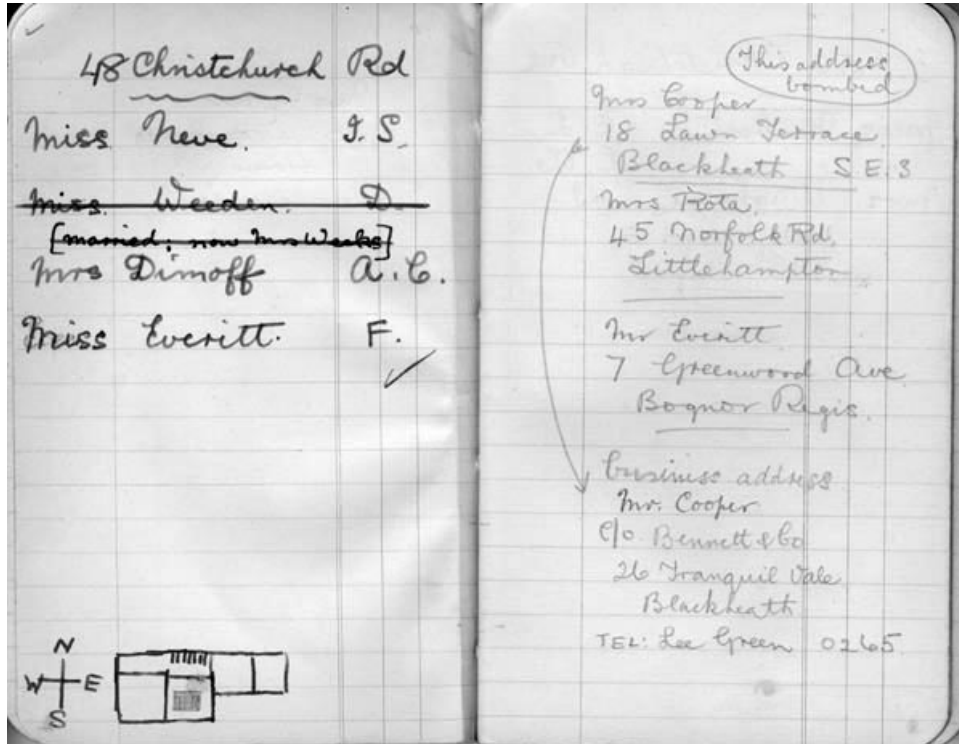 48 Christchurch Rd
Miss Neve. I. S.
Miss Weeden. D.
[married; now Mrs Weeks]
Mrs Dimoff A. C.
Miss Everitt. F.
N
W E
S
This address
bombed
Mrs Cooper
18 Lawn Terrace
Blackheath S.E.3
Mrs Rota,
45 Norfolk Rd,
Littlehampton
Mr Everitt
7 Greenwood Ave
Bognor Regis.
business address
Mr. Cooper
C/o Bennett & Co
26 Tranquil Vale
Blackheath
TEL: Lee Green 0265